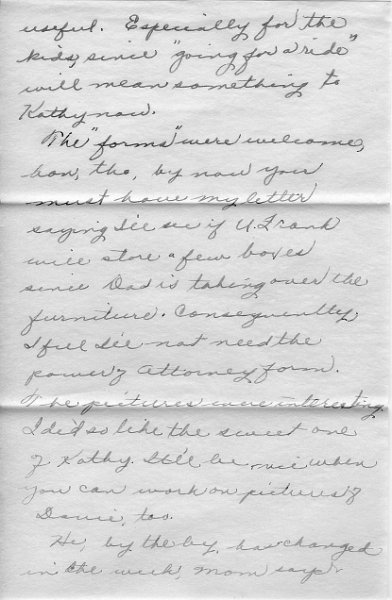 useful. Especially for the
kids, since "going for a ride"
will mean something to
Kathy now.
The "forms" were welcome,
hon, tho, by now your
must have my letter
saying I'll see if U. Frank
will store a few boxes
since Dad is taking over the
furniture. Consequently,
I feel I'll not need the
power of Attorney form.
The pictures were interesting.
I did so like the sweet one
of Kathy. It'll be nice when
you can work on pictures of
Davie, too.
He, by the by, has changed
in the week, Mom says